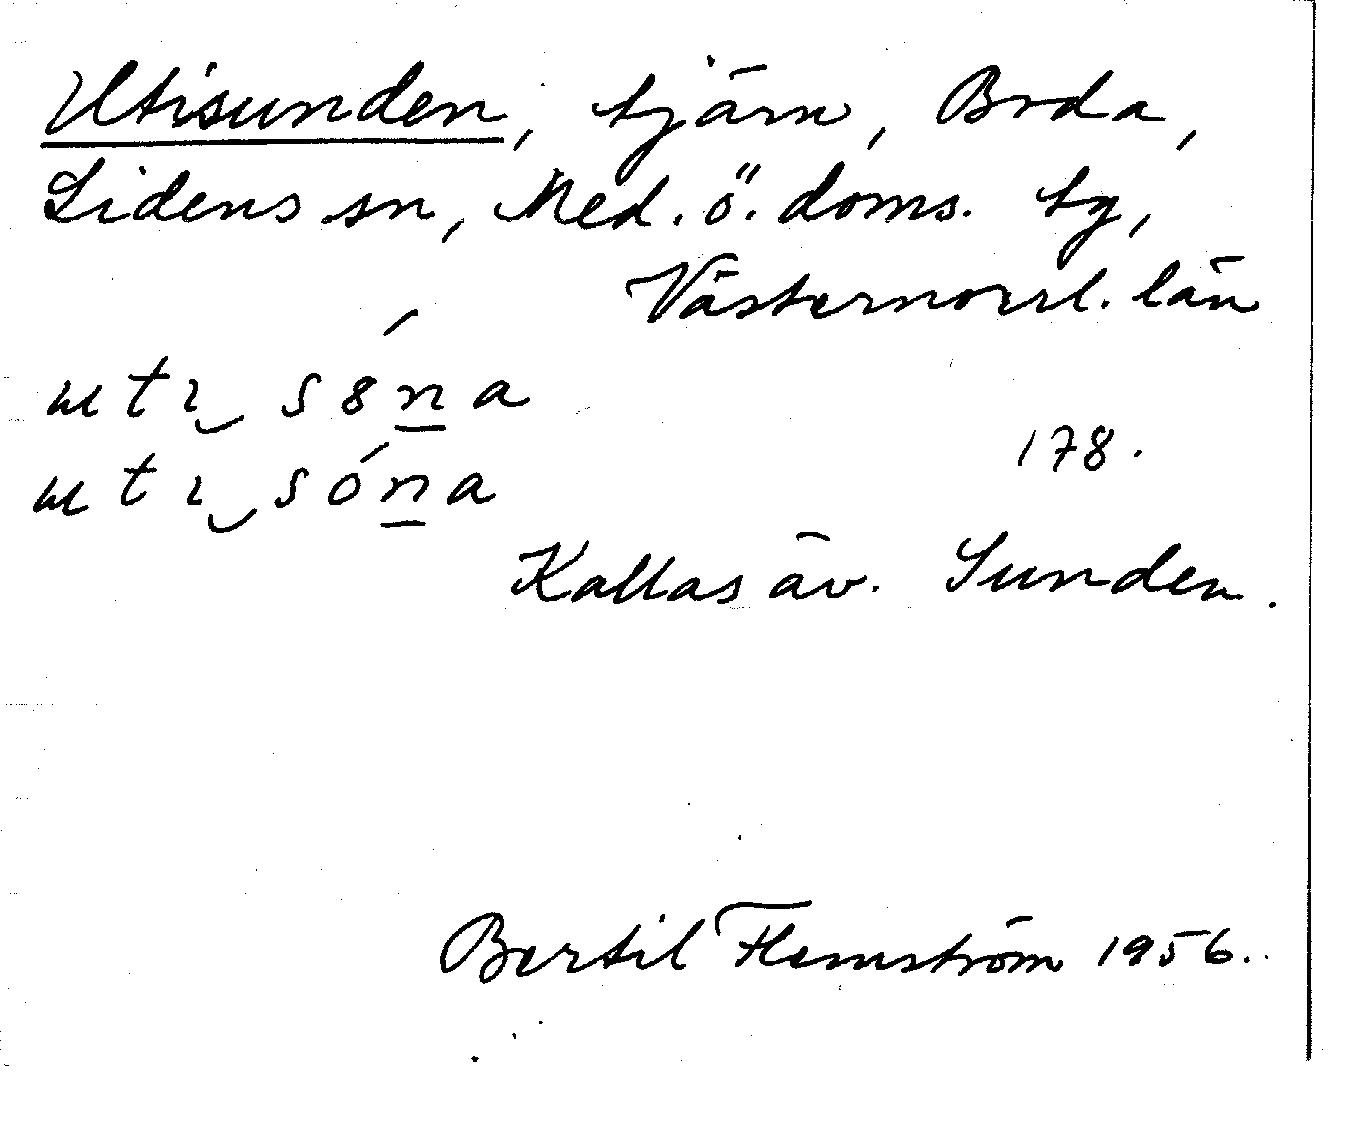 Utisunden, tjärn, Boda,
Lidens sn, Med. ö. doms. lg,
Västernorrl. län
utı s8́n̲a
178.
utı són̲a
Kallas äv. Sunden.
Bertil Flemström 1956.